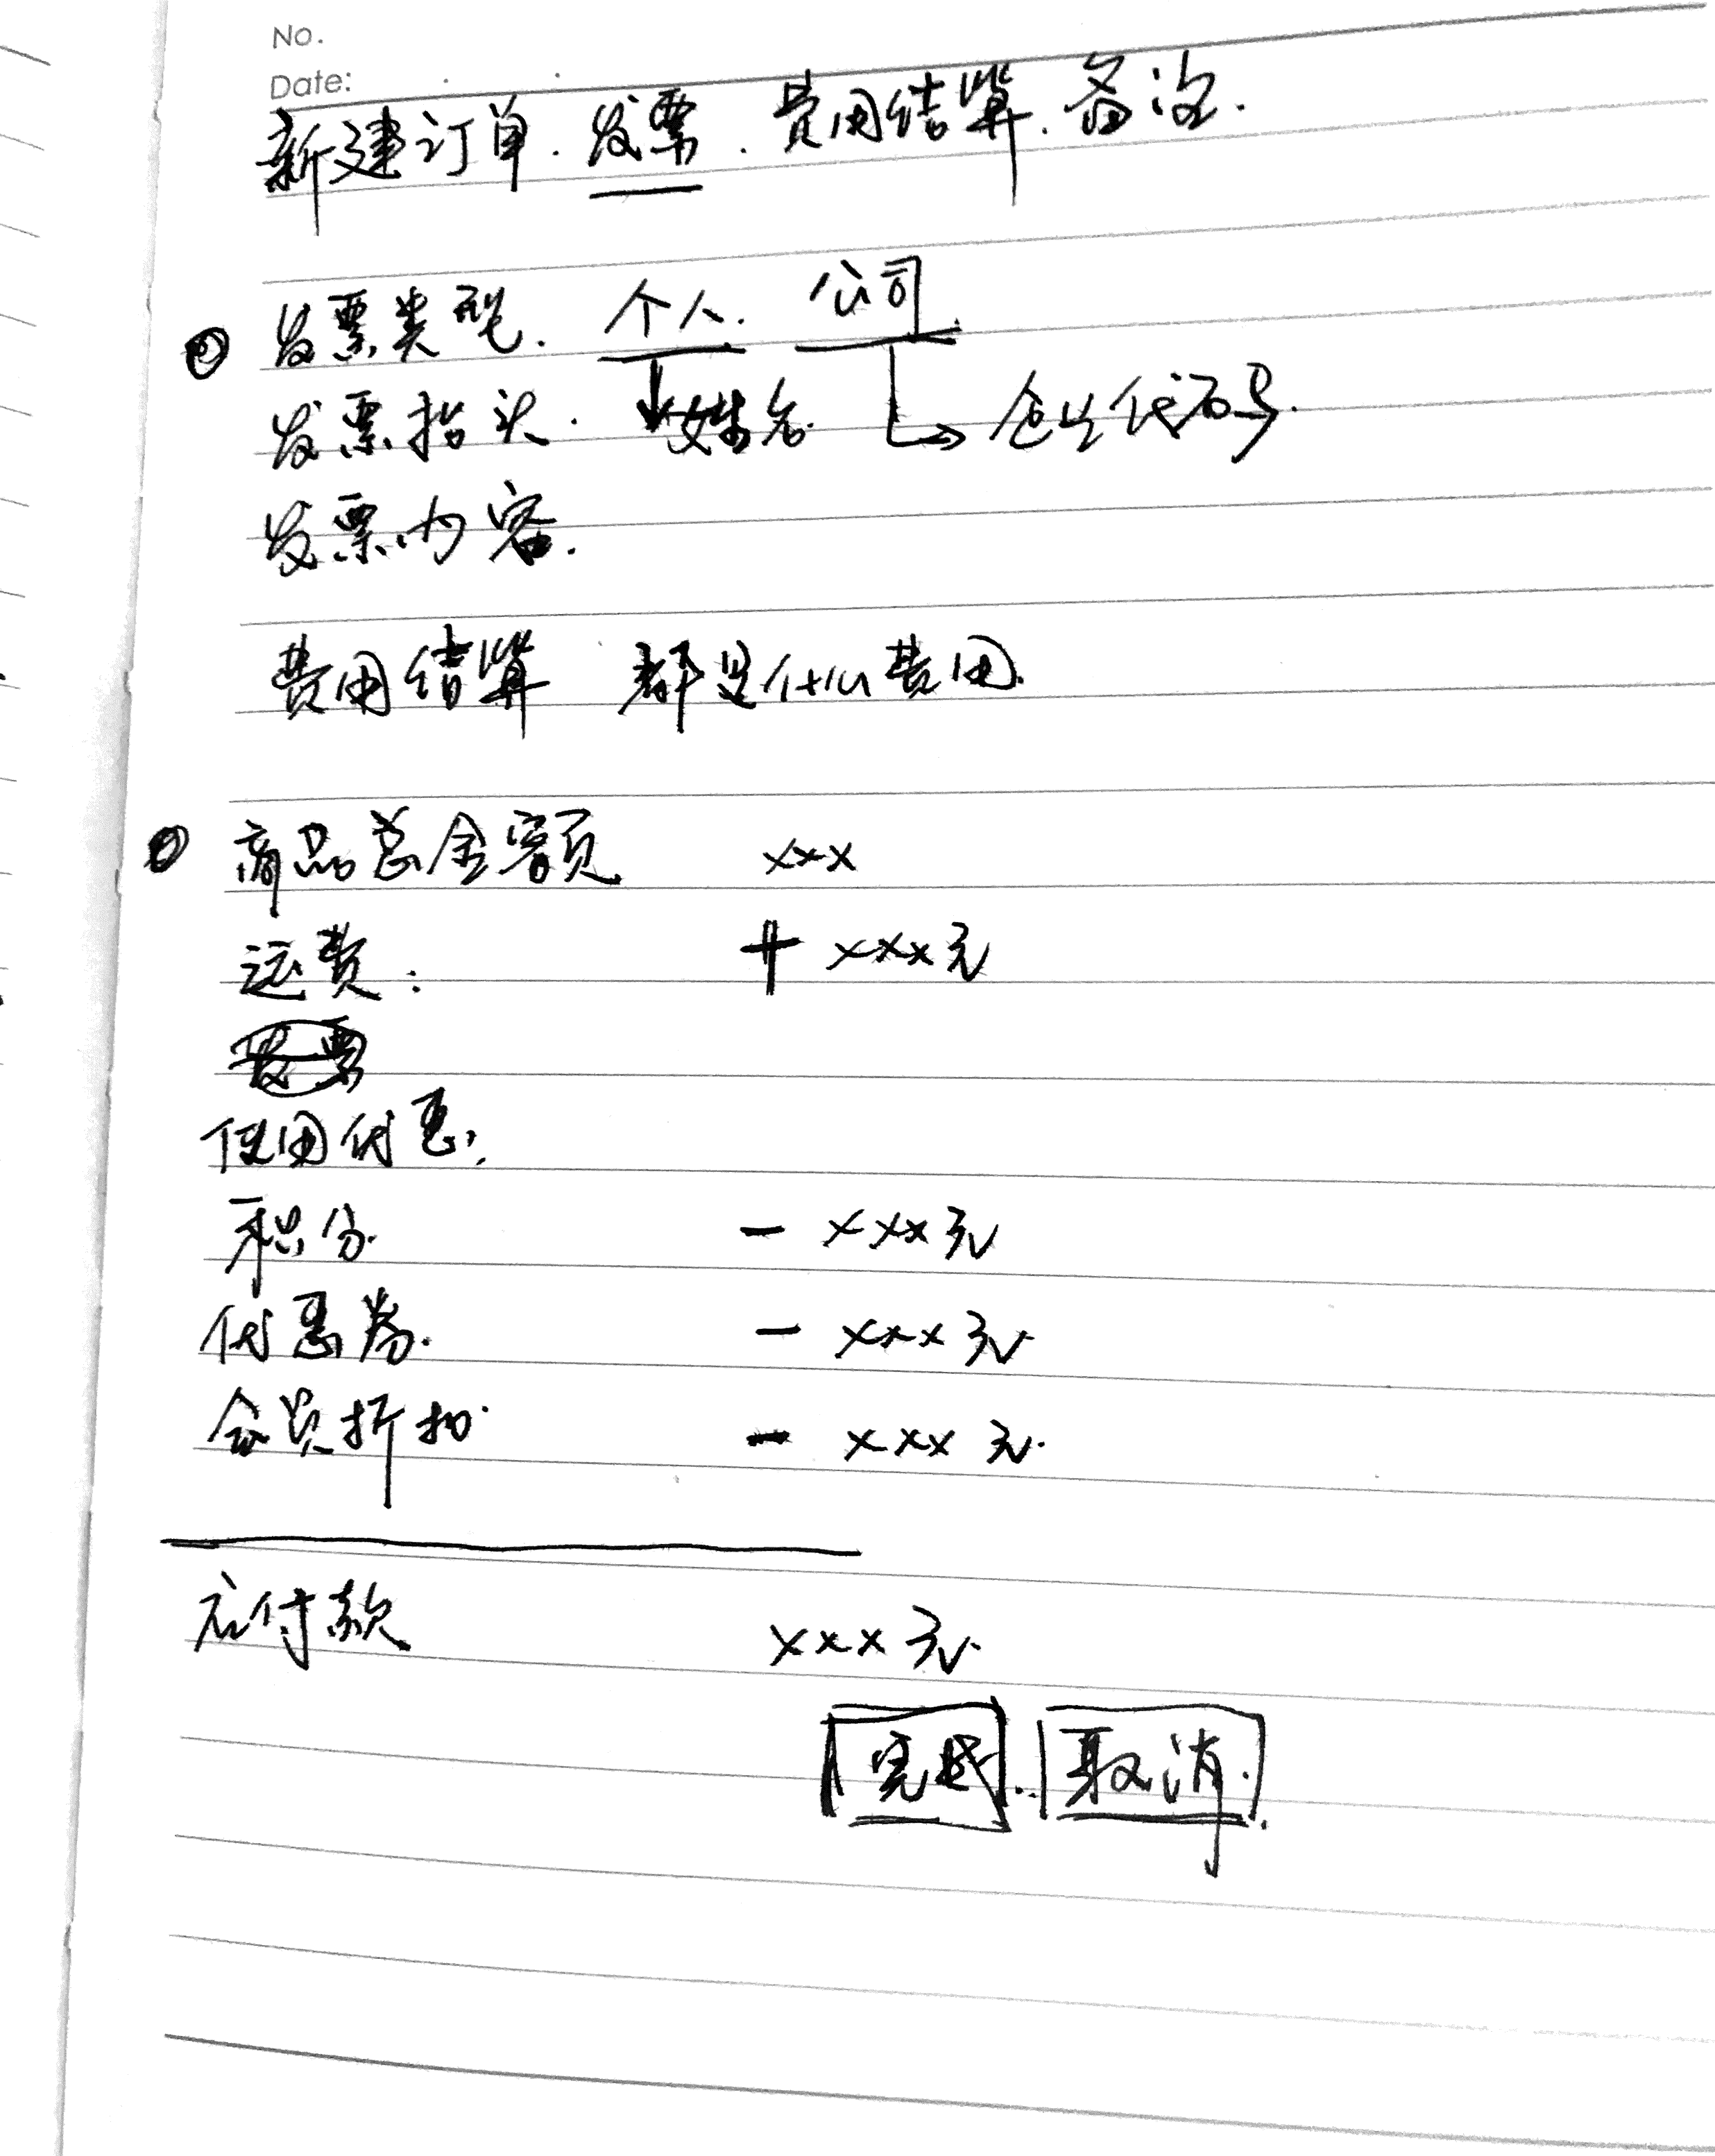 No.
Date:
新建订单. 发票. 费用结算. 备注.
发票类型. 个人. 公司.
发票抬头. 姓名. 企业代码号.
发票内容.
费用结算 都是什么费用.
商品总金额 xxx
运费: + xxx元
发票
使用优惠.
积分. - xxx元
优惠券. - xxx元.
会员折扣. - xxx元.
应付款 xxx元.
完成. 取消.